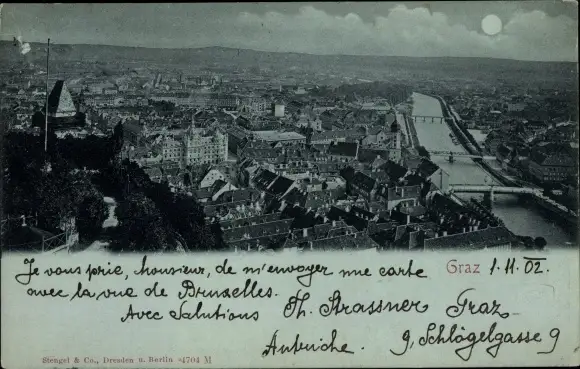 Je vous prie, honsieur, de m'envoyer une carte
avec la vue de Bruxelles.
Avec Salutions
Graz 1. 11. 02.
Th. Strassner Graz
Autriche. 9, Schlögelgasse 9
Stengel & Co., Dresden u. Berlin 4704 M